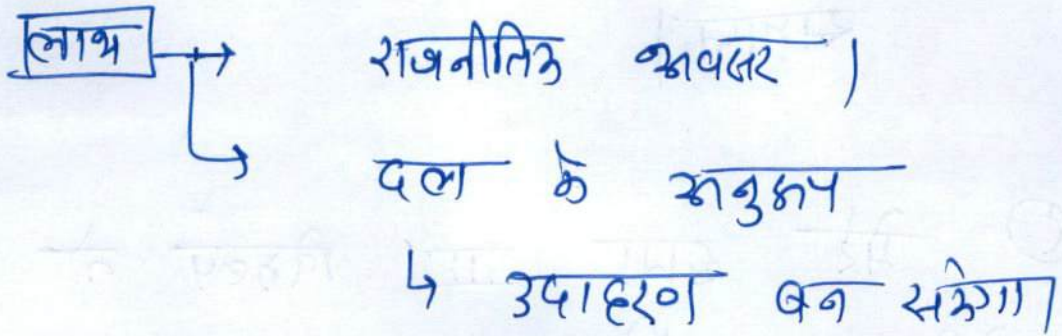 लाभ → राजनीतिक अवसर।
→ दल के अनुरूप
↳ उदाहरण बन सकेगा।